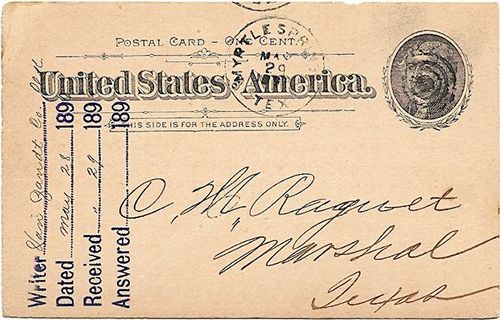 POSTAL CARD – ONE CENT.
United States of America.
THIS SIDE IS FOR THE ADDRESS ONLY.
MYRTLE SPRINGS
MAY
29
TEX.
C. M. Raguet
Marshal
Texas
Writer Van Zandt Co. Ord
Dated May 28 189
Received " 29 189
Answered 189